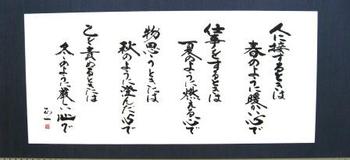 人に接するときは
春のように暖かい心で
仕事をするときは
夏のように燃える心で
物思うときは
秋のように澄んだ心で
己を責めるときは
冬のように厳しい心で